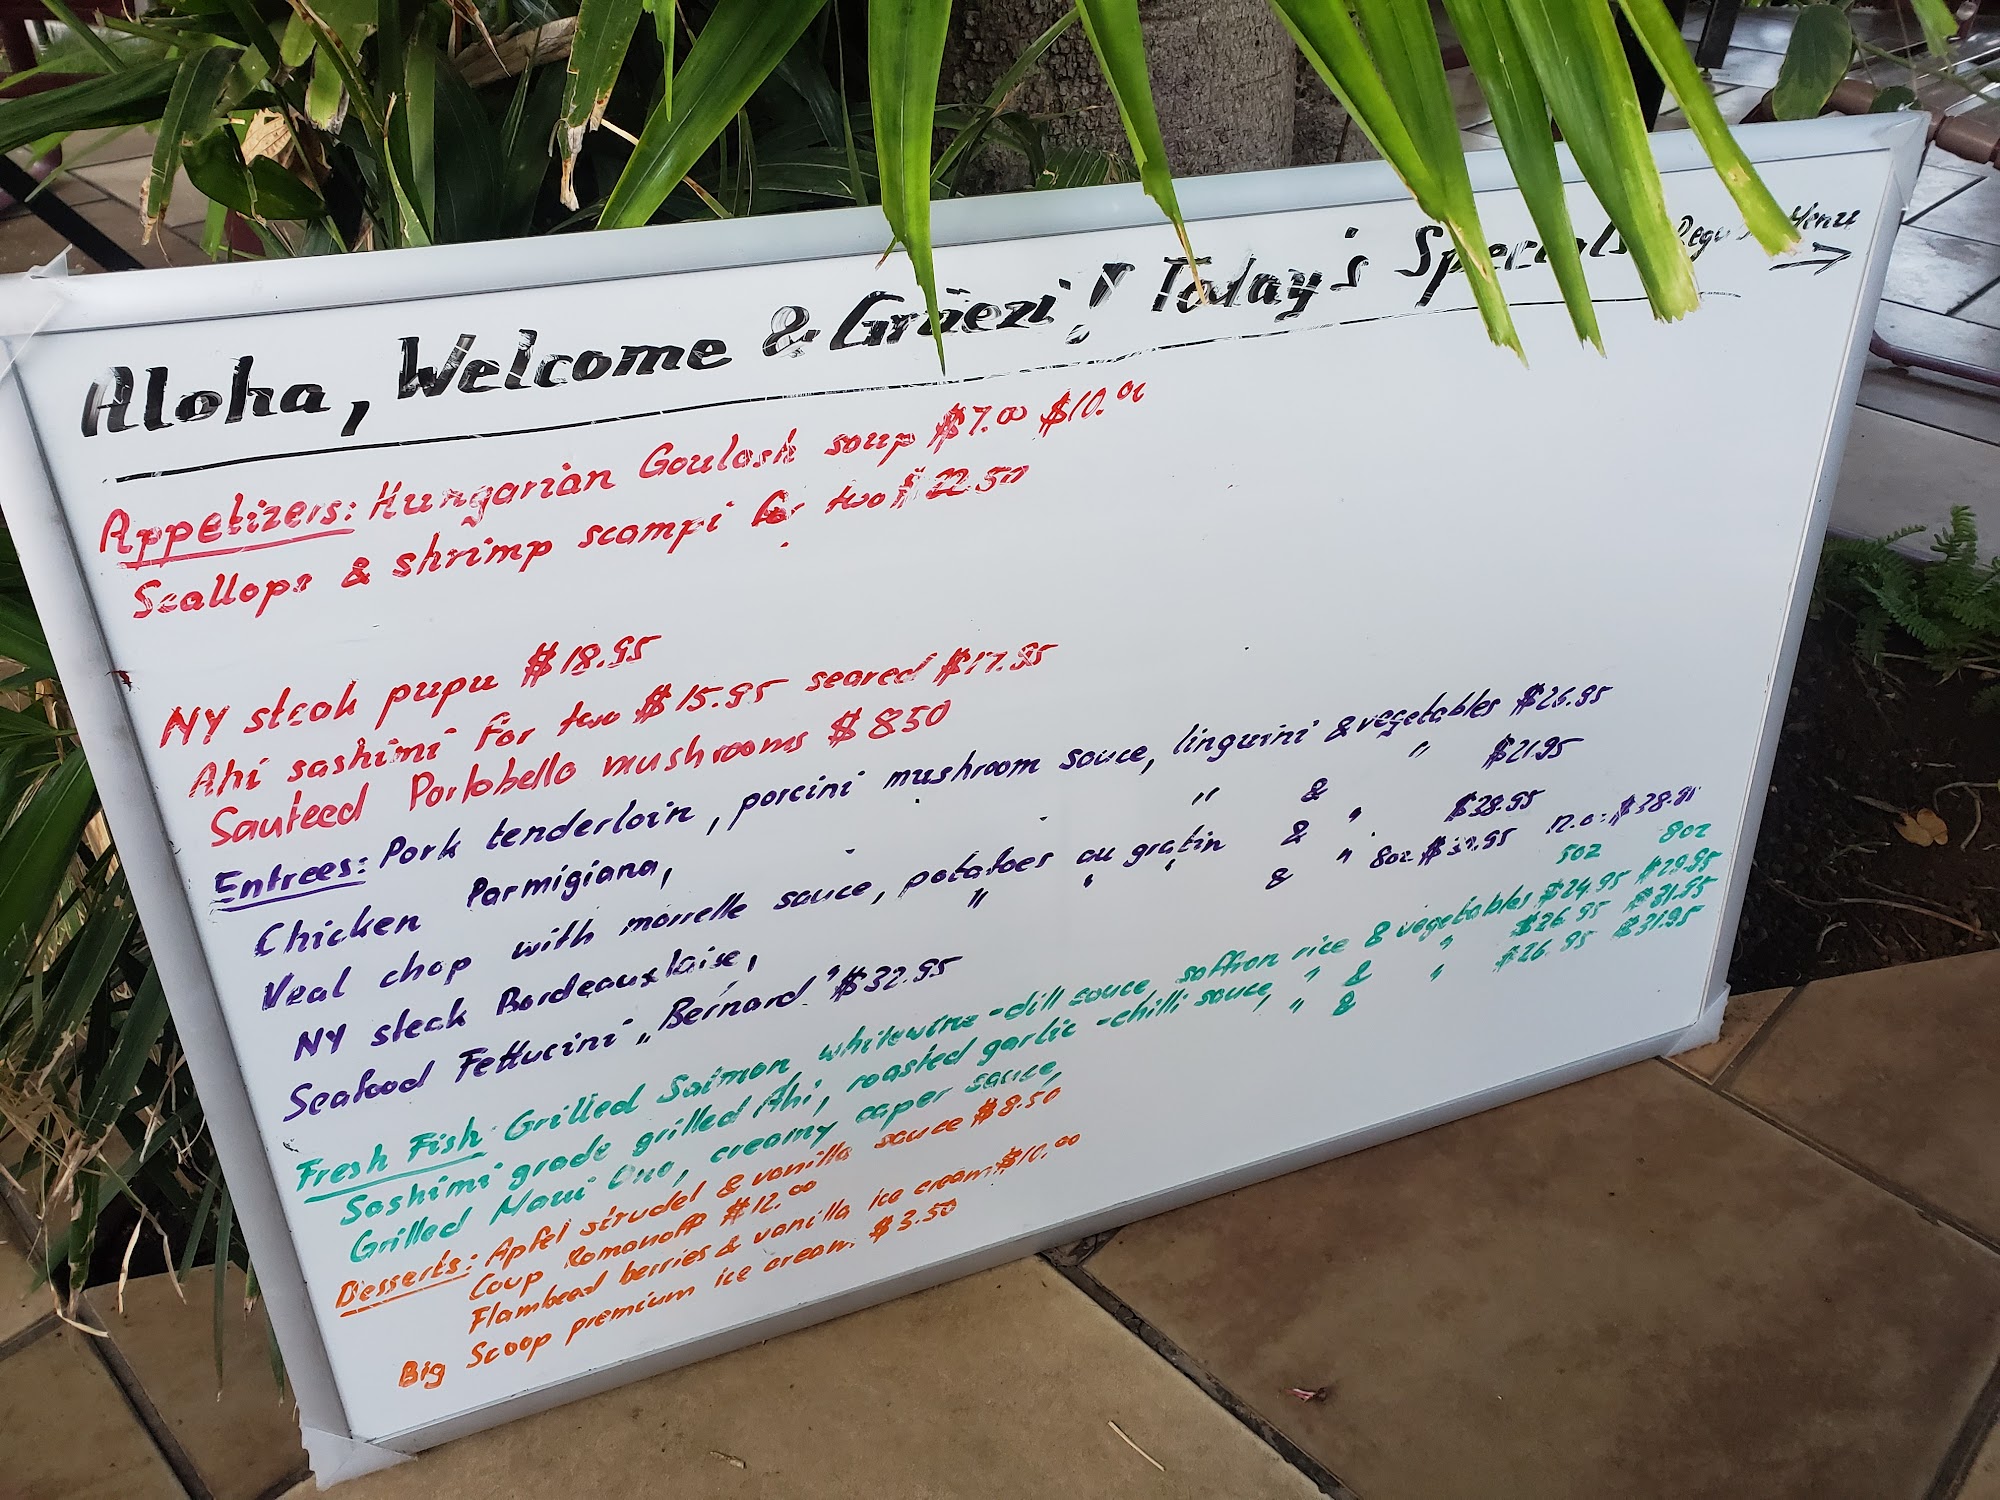 Aloha, Welcome & Grüezi! Today's Specials Menu →
Appetizers: Hungarian Goulash soup $7.00 $10.00
Scallops & shrimp scampi for two $22.50
NY steak pupu $18.95
Ahi sashimi for two $15.95 seared $17.95
Sauteed Portobello mushrooms $850
Entrees: Pork tenderloin, porcini mushroom sauce, linguini & vegetables $26.95
Chicken Parmigiana, " & " $21.95
Veal chop with morrelle sauce, potatoes au gratin & " $38.95
NY steak Bordeauxlaise, " " " & " 8oz $32.95 12.oz $38.95
Seafood Fettucini „Bernard" $32.95
5oz 8oz
Fresh Fish: Grilled Salmon, whitewine-dill sauce, saffron rice & vegetables $24.95 $29.95
Sashimi grade grilled Ahi, roasted garlic-chilli sauce, " & " $26.95 $31.95
Grilled Maui Ono, creamy caper sauce, " & " $26.95 $31.95
Desserts: Apfel strudel & vanilla sauce $8.50
Coup Romanoff $12.00
Flambeed berries & vanilla ice cream $10.00
Big Scoop premium ice cream $3.50